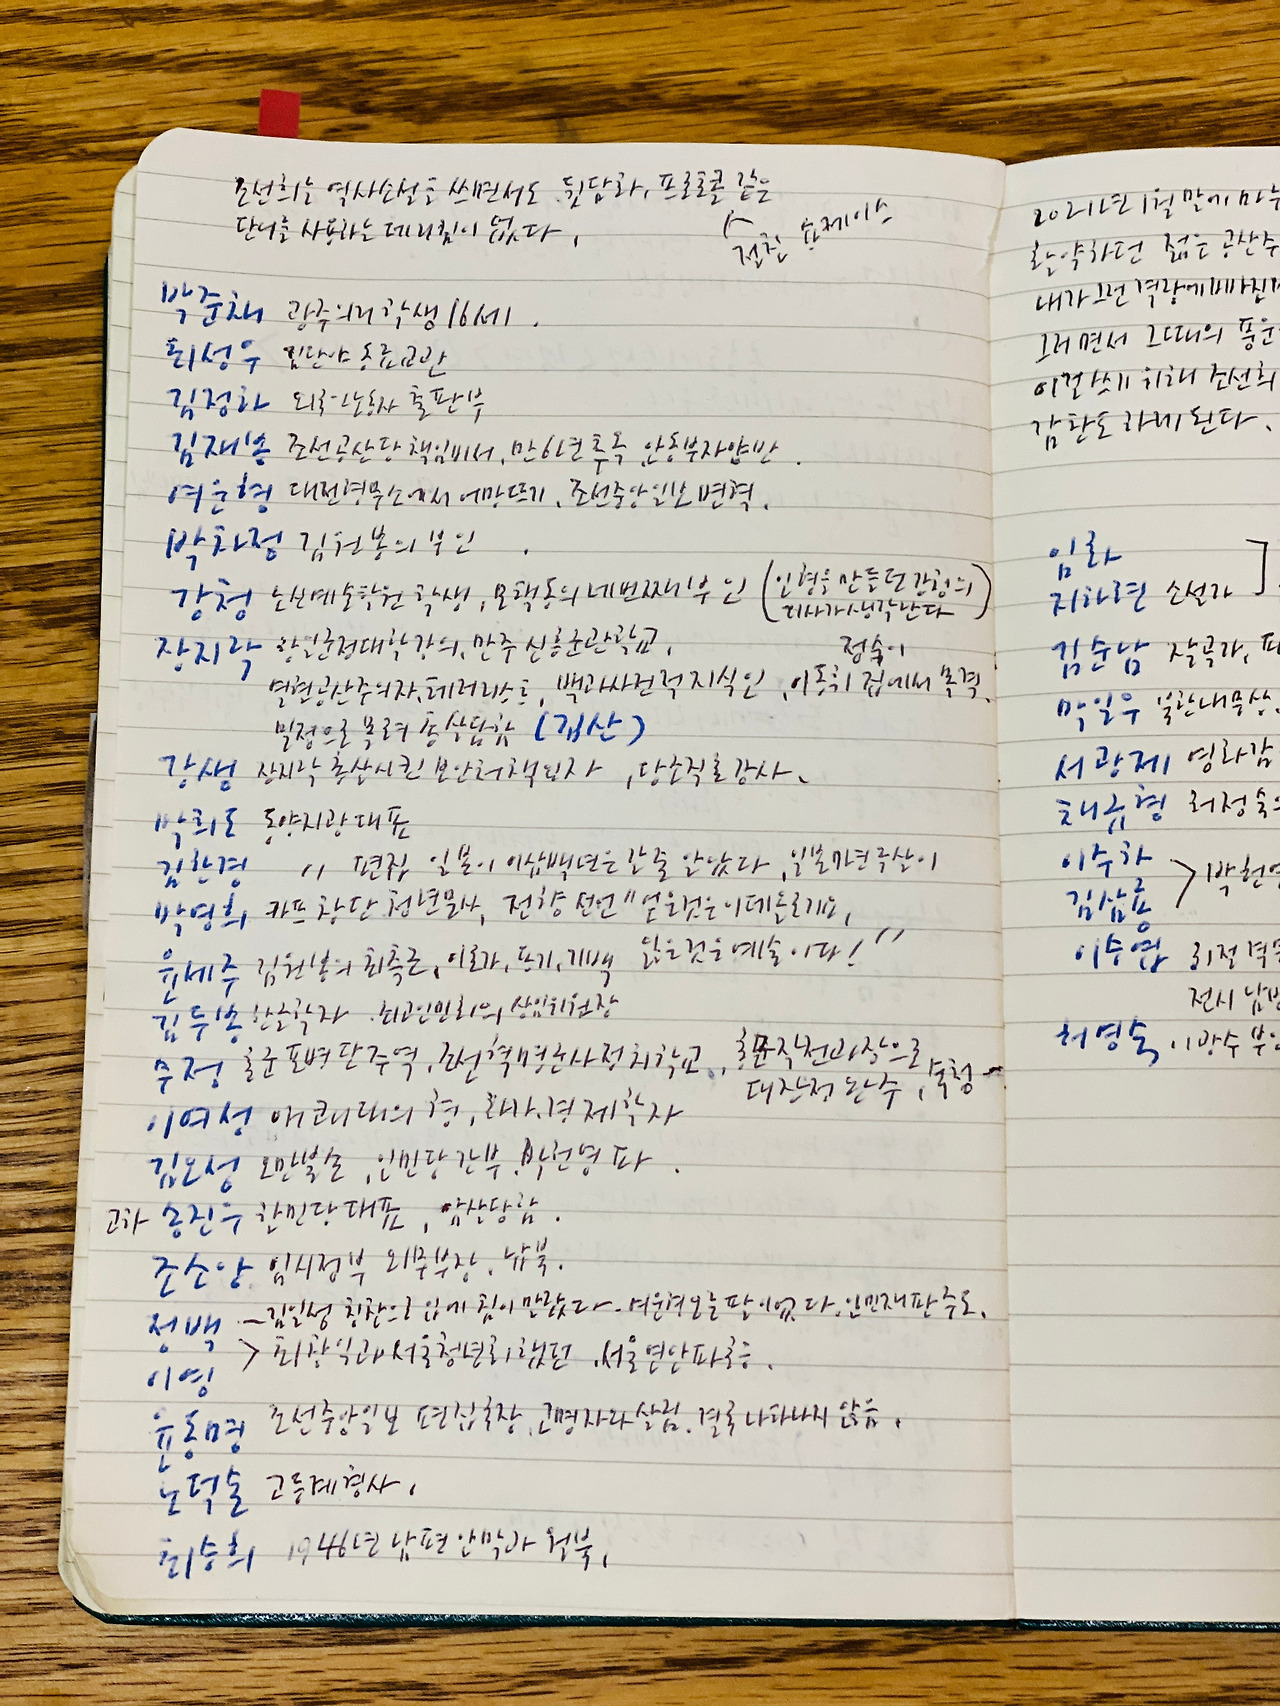 조선희는 역사소설을 쓰면서도 뒷담화, 프로토콜 같은
단어를 사용하는데 거침이 없다.
절친 숏케이스
박준채 광주의거 학생 16세.
최성우 집단 교관
김정하 외국노동자 출판부
김재봉 조선공산당 책임비서, 만6년 투옥, 안동부자양반.
여운형 대전형무소에서 어망뜨기, 조선중앙일보
박차정 김원봉의 부인.
강청 노신예술학원 학생, 모택동의 네번째 부인 (인형을 만들던 강청의
기사가 생각난다)
장지락 항일군정대학 강의, 만주 신흥군관학교,
열혈공산주의자, 테러리스트, 백과사전적 지식인, 정숙이 이동휘 집에서 목격.
밀정으로 몰려 총살당함 (김산)
강생 장지락 총살시킨 보안처책임자, 당조직로 강사.
박희도 동양지광 대표
김한경 〃 편집 일본이 이삼백년은 갈 줄 알았다,
박영희 카프 창단 청년문사, 전향선언 "얻은것은 이데올로기요,
잃은것은 예술이다!"
윤세주 김원봉의 최측근, 이론가, 투지, 기백
김두봉 한글학자. 최고인민회의 상임위원장
무정 홍군 포병단 주역, 조선혁명군사정치학교, 홍군작전과장으로
대장정 완주, 숙청
이여성 이쾌대의 형, 화가, 경제학자
김오성 오만불손, 인민당 간부, 박헌영파.
고하 송진우 한민당 대표, 암살당함.
조소앙 임시정부 외무부장, 납북.
정백 ~김일성 칭찬으로 입에 침이 말랐다. 인민재판 주도.
이영 > 최창익과 서울청년회 했던, 서울연안파
윤동명 조선중앙일보 편집국장, 고명자와 살림. 결국 나타나지 않음.
노덕술 고등계 형사.
최승희 1946년 남편 안막과 월북.
2021년 1월 말에
활약하던 젊은 공산주
내가 그런 격랑에 빠
그러면서 그때의 풍운
이걸 쓰기 위해 조선희
감탄도 하게 된다.
임화
지하련 소설가
김순남 작곡가,
박일우 북한내무상,
서광제 영화감
채규형 허정숙의
이주하
김삼룡 > 박헌영
이승엽 휘전 격문
전시 남방
허영숙 이광수 부인